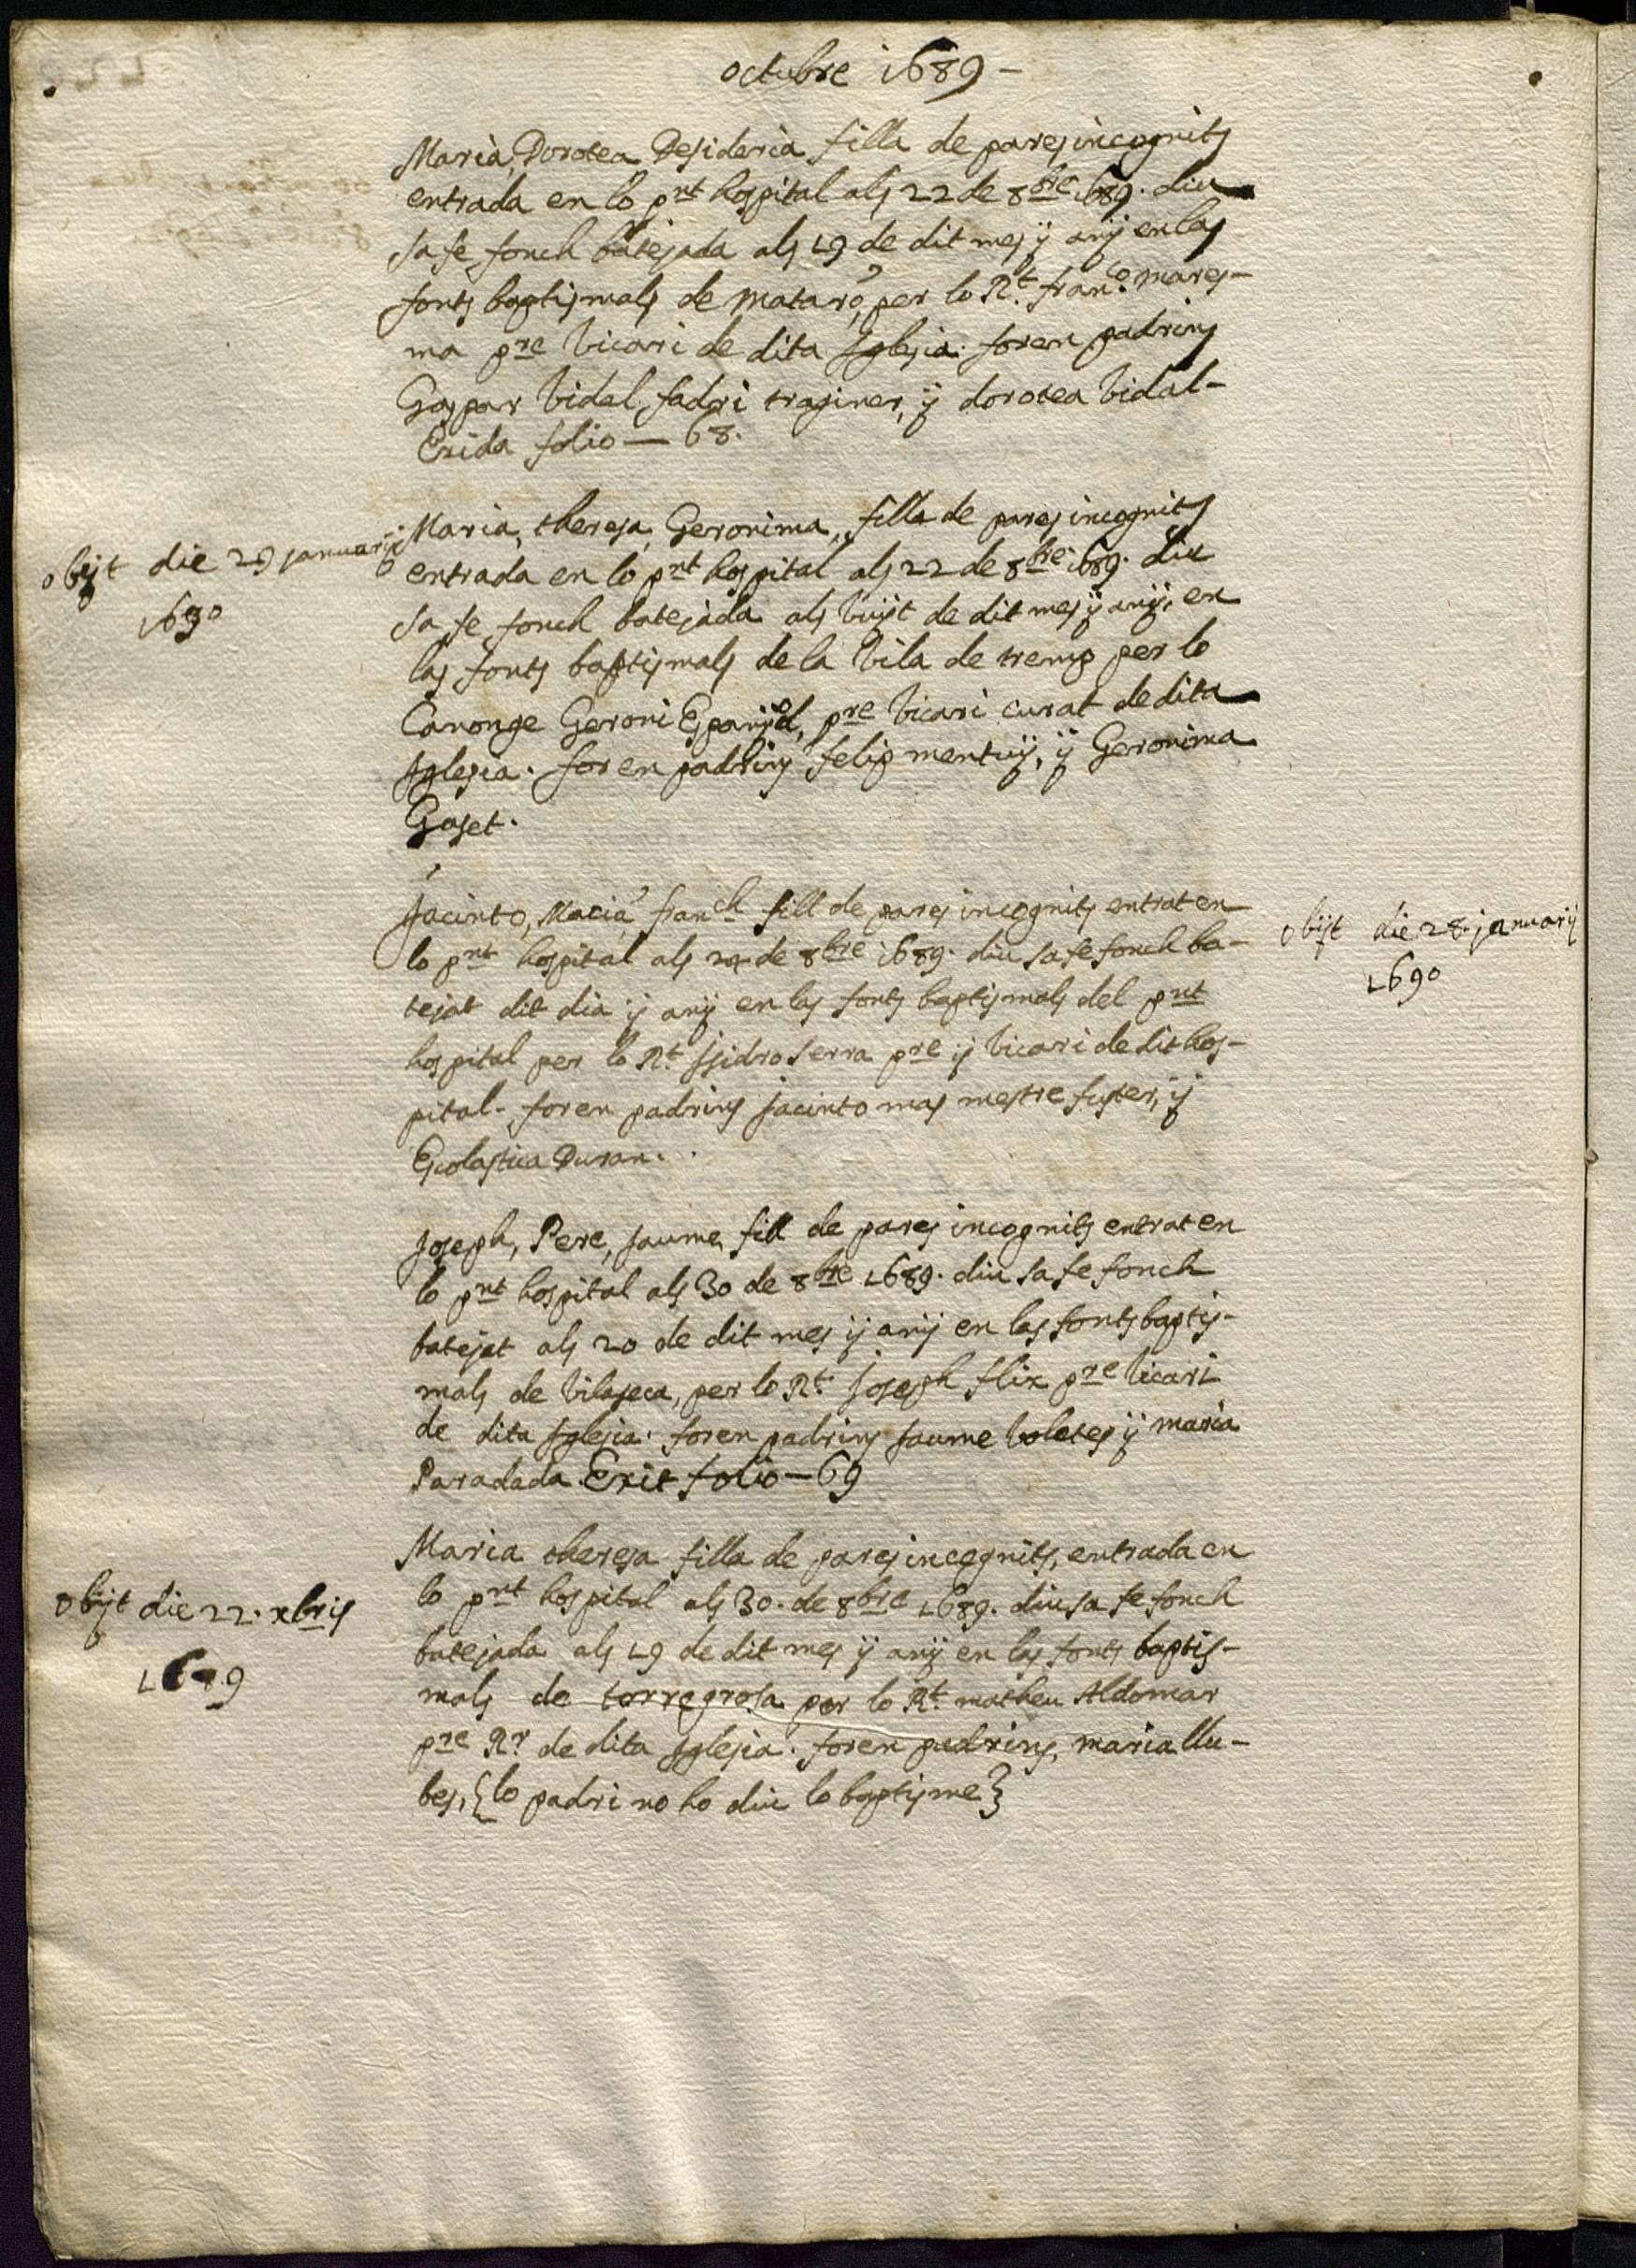 octubre 1689 -
Maria, Dorotea Desideria filla de pares incognits
entrada en lo pnt hospital als 22 de 8bre 1689. diu
sa fe fonch batejada als 19 de dit mes ÿ anÿ en las
fonts baptismals de Mataró, per lo Rt. franco. mares-
ma pre vicari de dita Iglesia: foren padrins
Gaspar Vidal, fadri traginer, ÿ dorotea Vidal-
Exida folio — 68.
obijt die 29 januarij
1690
Maria, theresa, Geronima, filla de pares incognits
entrada en lo pnt hospital als 22 de 8bre 1689. diu
sa fe fonch batejada als vuÿt de dit mes ÿ anÿ, en
las fonts baptismals de la Vila de tremp per lo
Canonge Geroni Espanÿol, pre vicari curat de dita
Iglesia. foren padrins felip mentuÿ, ÿ Geronima
Gaset.
Jacinto, Macià, franch fill de pares incognits entrat en
lo pnt hospital als 24 de 8bre 1689. diu sa fe fonch ba-
tejat dit dia ÿ anÿ en las fonts baptismals del pnt
hospital per lo Rt. Isidro Serra pre ÿ vicari de dit hos-
pital. foren padrins Jacinto mas mestre fuster, ÿ
Escolastica Duran.
obijt die 28. januarij
1690
Joseph, Pere, Jaume, fill de pares incognits entrat en
lo pnt hospital als 30 de 8bre 1689. diu sa fe fonch
batejat als 20 de dit mes ÿ anÿ en las fonts baptis-
mals de Vilaseca, per lo Rt. Joseph flix pre vicari
de dita Iglesia. foren padrins Jaume boletes ÿ maria
Paradada. Exit folio — 69
Maria theresa filla de pares incognits, entrada en
lo pnt hospital als 30. de 8bre 1689. diu sa fe fonch
batejada als 19 de dit mes ÿ anÿ en las fonts baptis-
mals de torregrosa per lo Rt. matheu Aldomar
pre Rr de dita Iglesia. foren padrins, maria llu-
bes, {lo padri no ho diu lo baptisme}
obijt die 22. xbris
1689